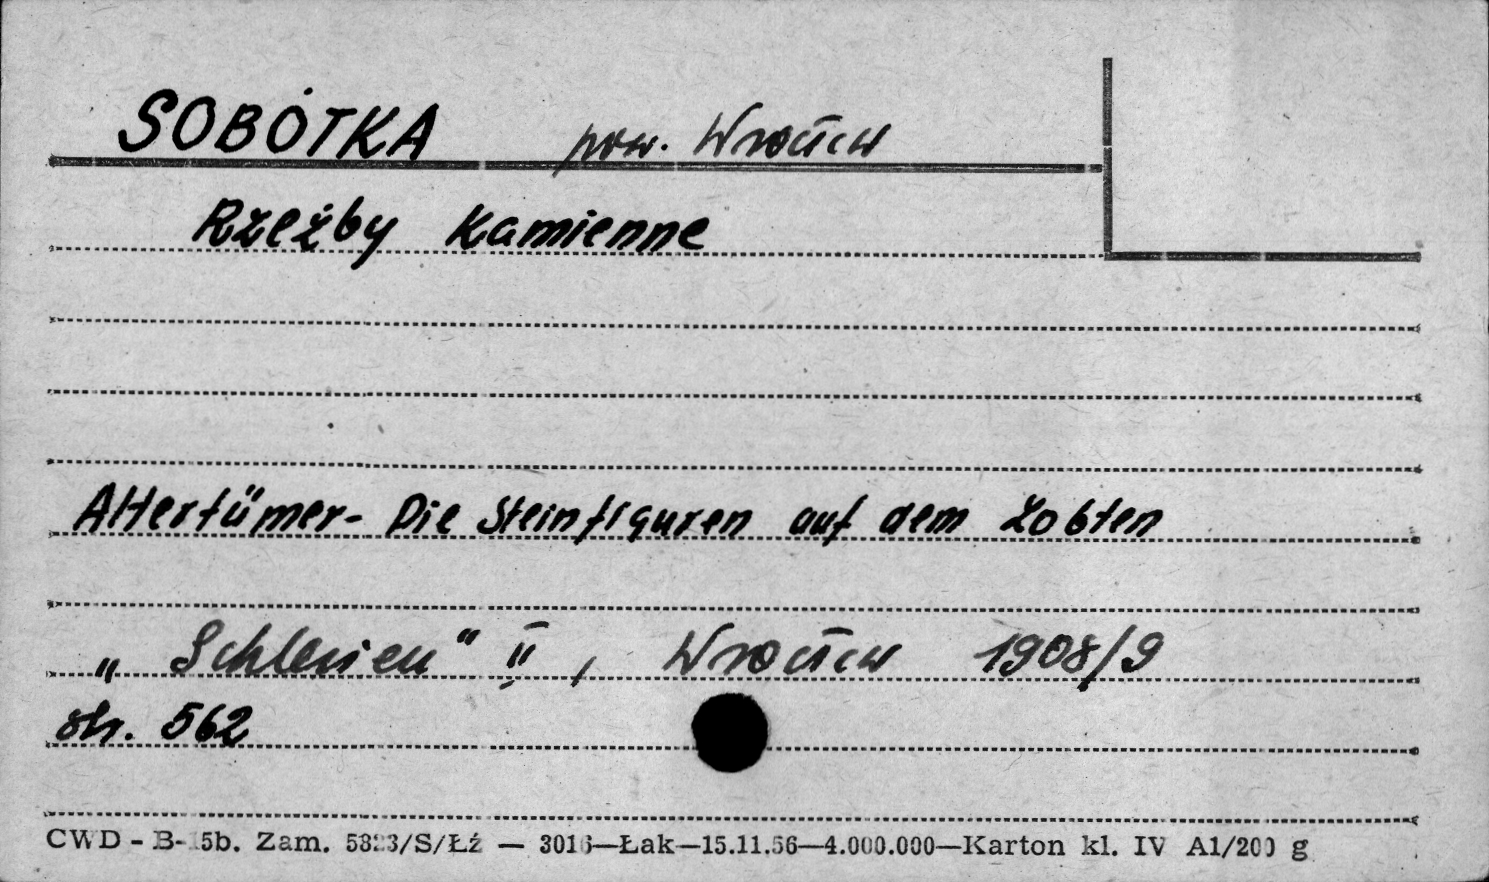 SOBÓTKA pow. Wrocław
Rzeźby Kamienne
Altertümer- Die Steinfiguren auf dem Zobten
„Schlesien" II, Wrocław 1908/9
str. 562
CWD - B- 5b. Zam. 5823/S/Łź — 3016—Łak—15.11.56—4.000.000—Karton kl. IV A1/200 g